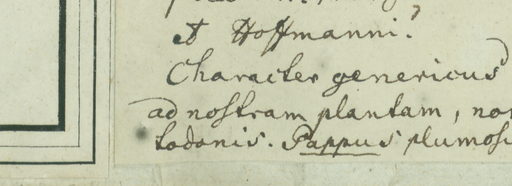 et Hoffmanni?
Character genericus
ad nostram plantam, non
todonis. Pappus plumosu